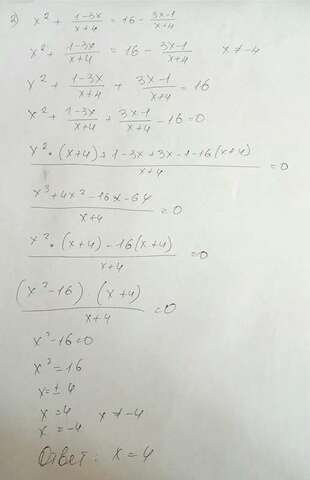 3) x² + (1-3x)/(x+4) = 16 - (3x-1)/(x+4)
x² + (1-3x)/(x+4) = 16 - (3x-1)/(x+4) x ≠ -4
x² + (1-3x)/(x+4) + (3x-1)/(x+4) = 16
x² + (1-3x)/(x+4) + (3x-1)/(x+4) - 16 = 0
(x² · (x+4) + 1-3x+3x-1-16(x+4))/(x+4) = 0
(x³+4x²-16x-64)/(x+4) = 0
(x² · (x+4) - 16(x+4))/(x+4) = 0
((x²-16) · (x+4))/(x+4) = 0
x²-16=0
x²=16
x=±4
x=4 x ≠ -4
x=-4
Ответ: x=4